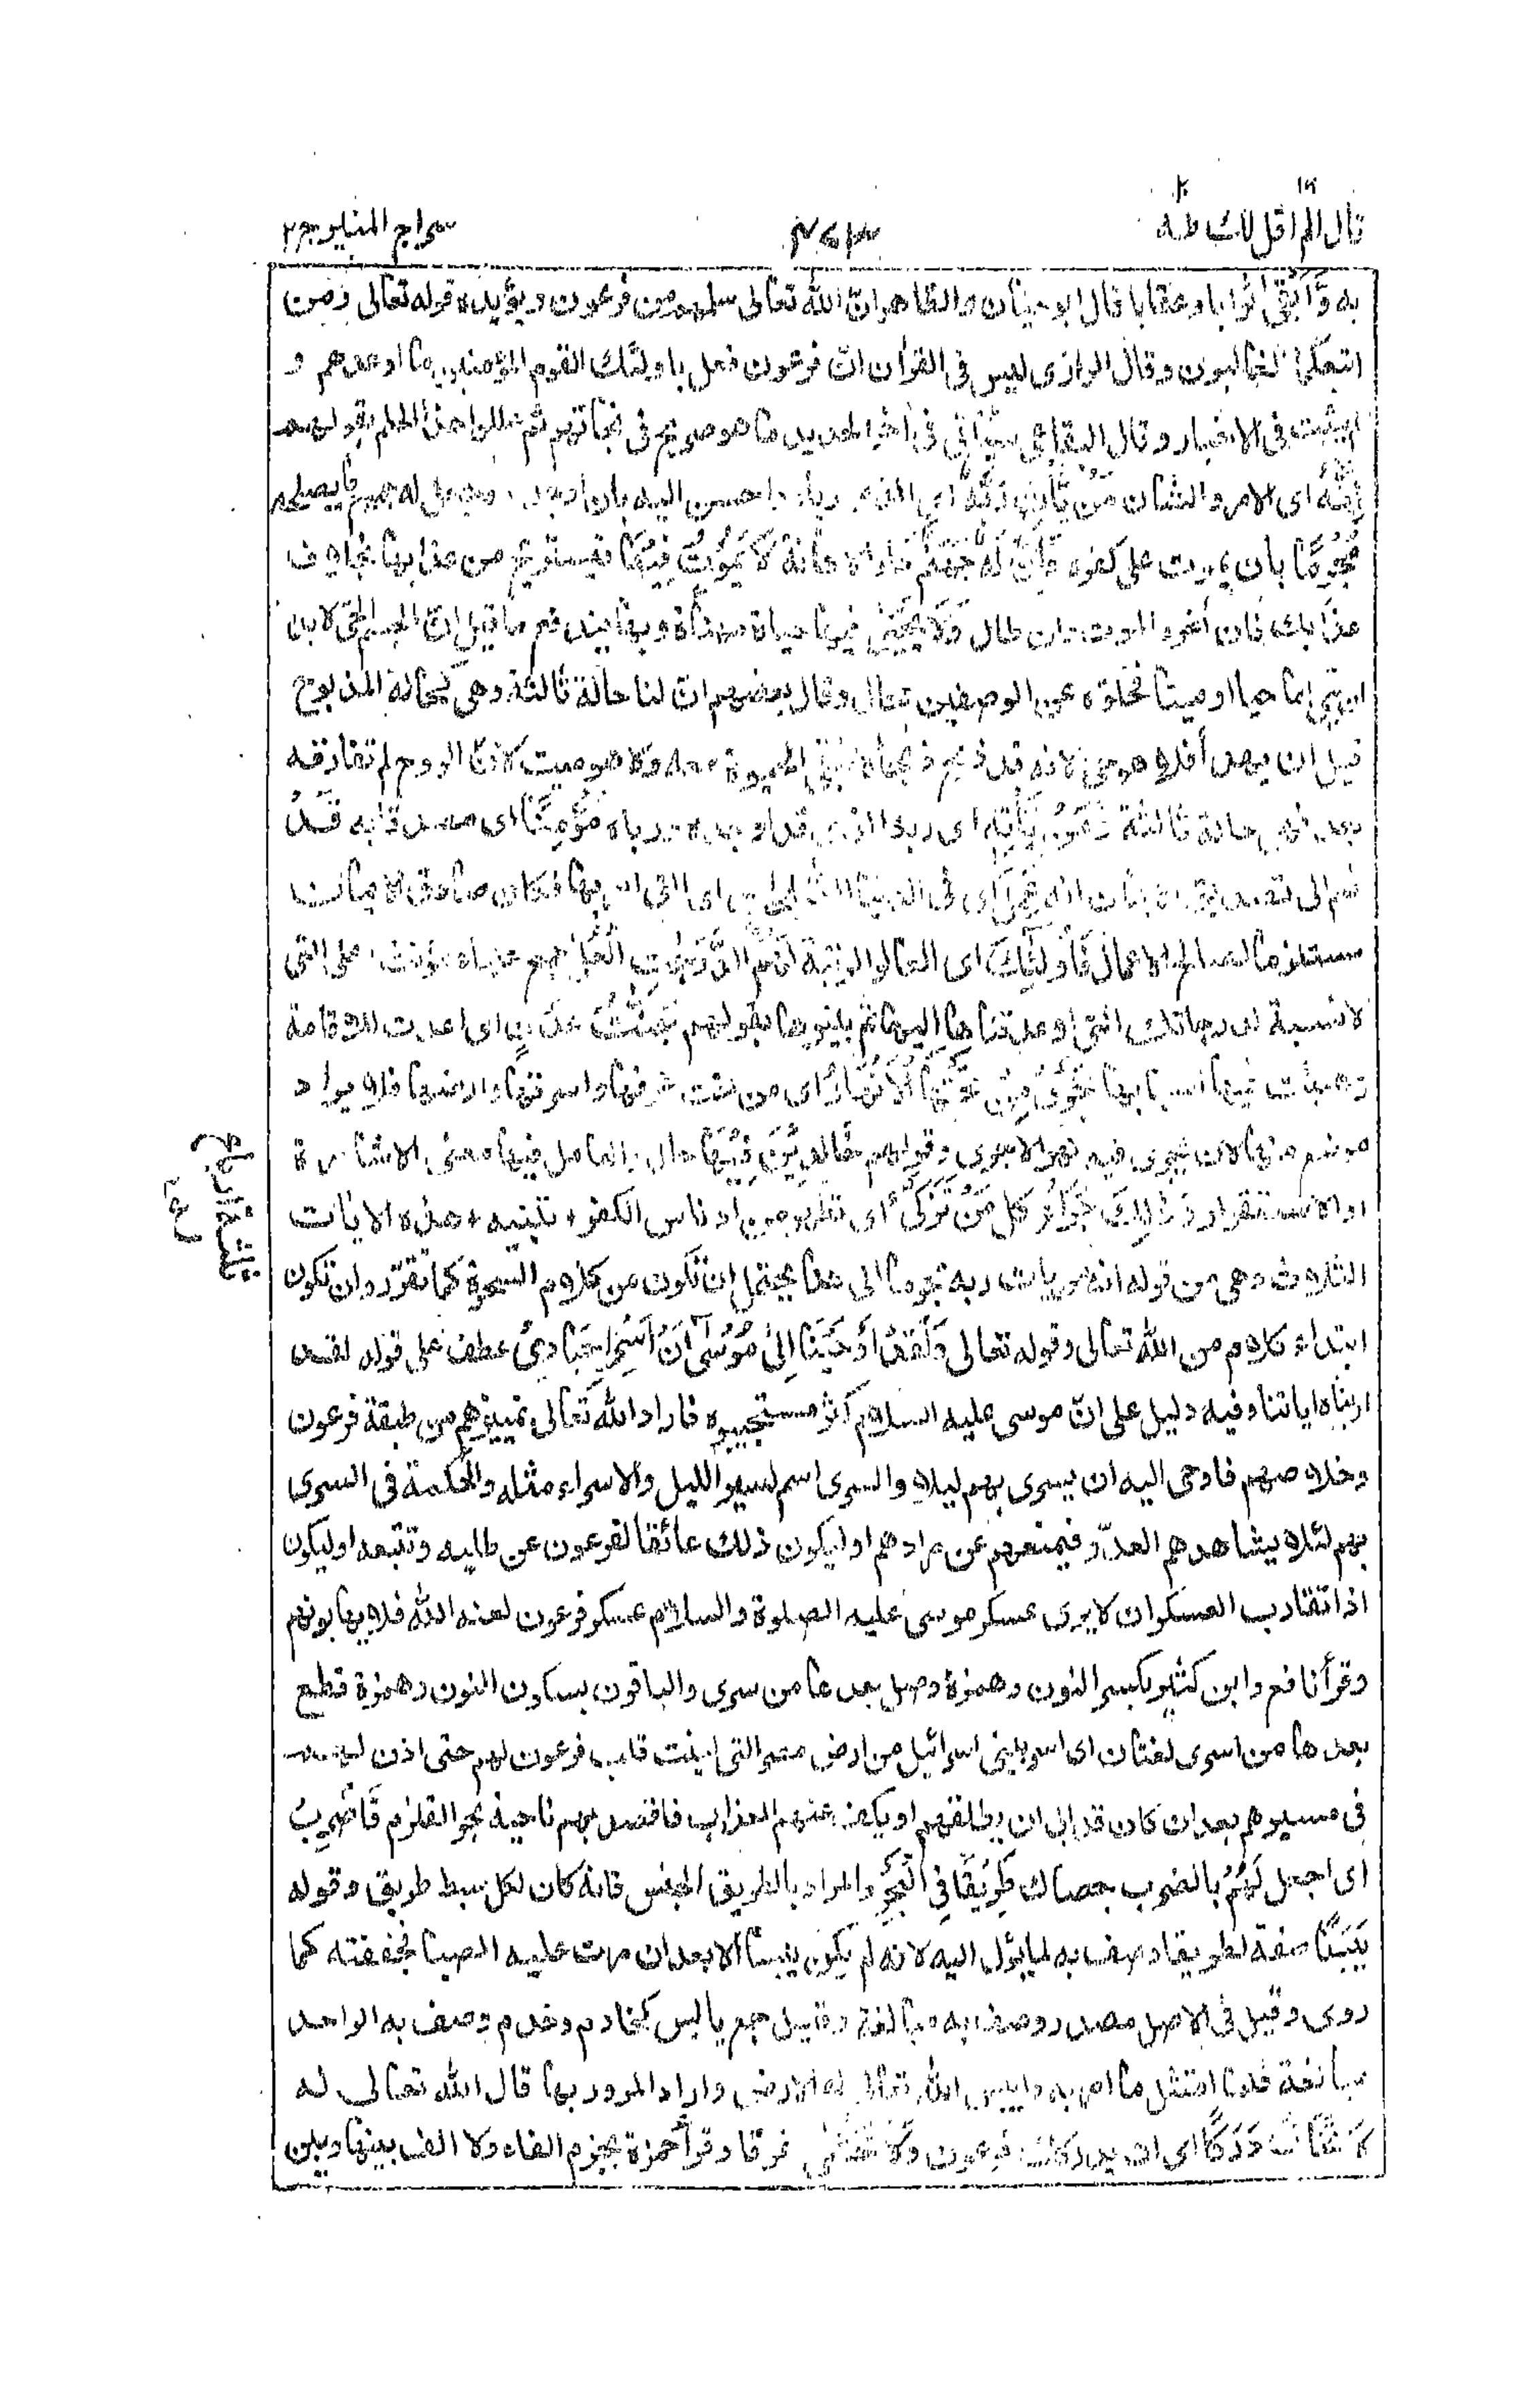 قال الم اقل لك ١٦ طه ٢٠
سراج المنير ج ٢
به وَّاَبْقٰى ثوابا وعقابا قال ابو حيان والظاهر ان الله تعالى سلمهم من فرعون ويؤيده قوله تعالى ومن
اتبعكما الغالبون وقال الرازى ليس فى القرأن ان فرعون فعل باولئك القوم المؤمنين ما اوعدهم و
لم يثبت فى الاخبار وقال البقاعى سيأتى فى أخر الحديد ما هو صريح فى نجاتهم ثم عللوا هذا الحكم بقولهم
اِنَّهٗ اى الامر والشان مَنْ يَّأْتِ رَبَّهٗ اى الذى رباه واحسن اليه بان اوجده وجعل له جميع ما يصلحه
مُجْرِمًا بان يموت على كفره فَاِنَّ لَهٗ جَهَنَّمَ لَا يَمُوْتُ فِيْهَا فيستريح من عذابها بخلاف
عذابك فان أخره الموت وان طال وَلَا يَحْيٰى فيها حياة مهنأة وبها يندفع ما قيل ان الجسم الحى لا بد
ان يبقى اما حيا او ميتا فخلوه عن الوصفين محال وقال بعضهم ان لنا حالة ثالثة وهى كحالة المذبوح
قبل ان يهدأ فلا هو حى لانه قد ذبح ذبحا لا تبقى الحيوة معه ولا هو ميت لان الروح لم تفارقه
بعد فهى حالة ثالثة وَمَنْ يَّأْتِهٖ اى ربه الذى قد اوجده ورباه مُؤْمِنًا اى مصدقا به قَدْ
ضم الى تصديقه بانه عَمِلَ اى فى الدنيا الصّٰلِحٰتِ اى التى امر بها فكان صادق الايمان
مستلزما لصالح الاعمال فَاُولٰٓئِكَ اى العالو الرتبة لَهُمُ الدَّرَجٰتُ الْعُلٰى جمع علياء مؤنث اعلى التى
لا نسبة لدرجاتك التى اوعدتنا بها اليها ثم بينوها بقولهم جَنّٰتُ عَدْنٍ اى اعدت للاقامة
وهيئت فيها اسبابها تَجْرِىْ مِنْ تَحْتِهَا الْاَنْهٰرُ اى من تحت غرفها واسرتها وارضها فلا يراد
موضع منها لان يجرى فيه نهر الا جرى وقولهم خٰلِدِيْنَ فِيْهَا حال والعامل فيها معنى الاشارة
او الاستقرار وَذٰلِكَ جَزٰٓؤُا كل مَنْ تَزَكّٰى اى تطهر من ادناس الكفر ٭ تنبيه ٭ هذه الأيات
الثلاث وهى من قوله انه من يأت ربه مجرما الى هنا يحتمل ان تكون من كلام السحرة كما تقرر وان تكون
ابتداء كلام من الله تعالى وقوله تعالى وَلَقَدْ اَوْحَيْنَا اِلٰى مُوْسٰٓى اَنْ اَسْرِ بِعِبَادِىْ عطف على قوله لقد
اريناه اياتنا وفيه دليل على ان موسى عليه السلام كثر مستجيبوه فاراد الله تعالى تمييزهم من طبقة فرعون
وخلاصهم فاوحى اليه ان يسرى بهم ليلا والسرى اسم لسير الليل والاسراء مثله والحكمة فى السرى
بهم لئلا يشاهدهم العدو فيمنعهم عن مرادهم او ليكون ذلك عائقا لفرعون عن طلبه وتتبعه او ليكون
اذا تقارب العسكران لا يرى عسكر موسى عليه الصلوة والسلام عسكر فرعون لعنه الله فلا يهابونهم
وقرأ نافع وابن كثير بكسر النون وهمزة وصل بعدها من سرى والباقون بسكون النون وهمزة قطع
بعدها من اسرى لغتان اى اسر ببنى اسرائيل من ارض مصر التى لينت قلب فرعون لهم حتى اذن لهم
فى مسيرهم بعد ان كان قد ابى ان يطلقهم او يكف عنهم العذاب فاقصد بهم ناحية بحر القلزم فَاضْرِبْ
اى اجعل لَهُمْ بالضرب بعصاك طَرِيْقًا فِى الْبَحْرِ والمراد بالطريق الجنس فانه كان لكل سبط طريق وقوله
يَبَسًا صفة لطريقا وصف به لما يؤل اليه لانه لم يكن يبسا الا بعد ان مرت عليه الصبا فجففته كما
روى وقيل فى الاصل مصدر وصف به مبالغة وقيل جمع يابس كخادم وخدم وصف به الواحد
مبالغة فلما امتثل ما امر به وايبس الله تعالى له الارض واراد المرور بها قال الله تعالى له
لَا تَخٰفُ دَرَكًا اى ان يدركك فرعون وَّلَا تَخْشٰى غرقا وقرأ حمزة بجزم الفاء ولا الف بينها وبين